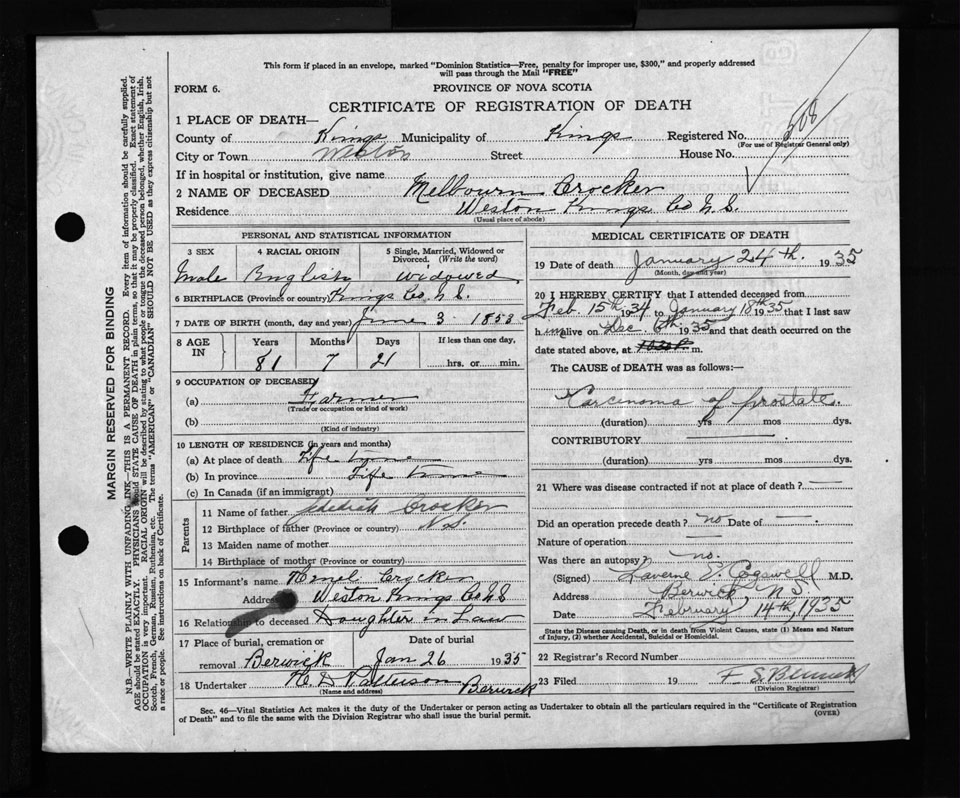 This form if placed in an envelope, marked "Dominion Statistics—Free, penalty for improper use, $300," and properly addressed
will pass through the Mail "FREE"
FORM 6.
PROVINCE OF NOVA SCOTIA
CERTIFICATE OF REGISTRATION OF DEATH
1 PLACE OF DEATH—
County of Kings Municipality of Kings Registered No. 508
(For use of Registrar General only)
City or Town Weston Street House No.
If in hospital or institution, give name
2 NAME OF DECEASED Melbourn Crocker
Residence Weston Kings Co N.S.
(Usual place of abode)
PERSONAL AND STATISTICAL INFORMATION
3 SEX 4 RACIAL ORIGIN 5 Single, Married, Widowed or Divorced. (Write the word)
Male English Widowed
6 BIRTHPLACE (Province or country) Kings Co. N.S.
7 DATE OF BIRTH (month, day and year) June 3 1853
8 AGE IN Years Months Days If less than one day,
81 7 21 hrs. or min.
9 OCCUPATION OF DECEASED
(a) Farmer
(Trade or occupation or kind of work)
(b)
(Kind of industry)
10 LENGTH OF RESIDENCE (in years and months)
(a) At place of death Life time
(b) In province Life time
(c) In Canada (if an immigrant)
Parents
11 Name of father Jedediah Crocker
12 Birthplace of father (Province or country) N.S.
13 Maiden name of mother
14 Birthplace of mother (Province or country)
15 Informant's name Crocker
Address Weston Kings Co N.S
16 Relationship to deceased Daughter in Law
17 Place of burial, cremation or removal Date of burial
Berwick Jan 26 1935
18 Undertaker H. D Patterson Berwick
(Name and address)
MEDICAL CERTIFICATE OF DEATH
19 Date of death January 24th. 1935
(Month, day and year)
20 I HEREBY CERTIFY that I attended deceased from
Feb. 15th 1934 to January 18th 1935 that I last saw
h im alive on 1935 and that death occurred on
date stated above, at m.
The CAUSE of DEATH was as follows:—
Carcinoma of prostate.
(duration) yrs mos dys.
CONTRIBUTORY
(duration) yrs mos dys.
21 Where was disease contracted if not at place of death? —
Did an operation precede death? no Date of —
Nature of operation —
Was there an autopsy? no.
(Signed) Laverne E Cogswell M.D.
Address Berwick, N.S.
Date February 14th, 1935
State the Disease causing Death, or in death from Violent Causes, state (1) Means and Nature
of Injury, (2) whether Accidental, Suicidal or Homicidal.
22 Registrar's Record Number
23 Filed 19
(Division Registrar)
Sec. 46—Vital Statistics Act makes it the duty of the Undertaker or person acting as Undertaker to obtain all the particulars required in the "Certificate of Registration
of Death" and to file the same with the Division Registrar who shall issue the burial permit. (OVER)
MARGIN RESERVED FOR BINDING
N.B.—WRITE PLAINLY WITH UNFADING INK—THIS IS A PERMANENT RECORD. Every item of information should be carefully supplied.
AGE should be stated EXACTLY. PHYSICIANS should STATE CAUSE OF DEATH in plain terms, so that it may be properly classified. Exact statement of
OCCUPATION is very important. RACIAL ORIGIN will be described by stating to what people or tongue the deceased person belonged, whether English, Irish,
Scotch, French, German, Russian, Ruthenian, etc. The terms "AMERICAN" or "CANADIAN" SHOULD NOT BE USED as they express citizenship but not
a race or people. See instructions on back of Certificate.